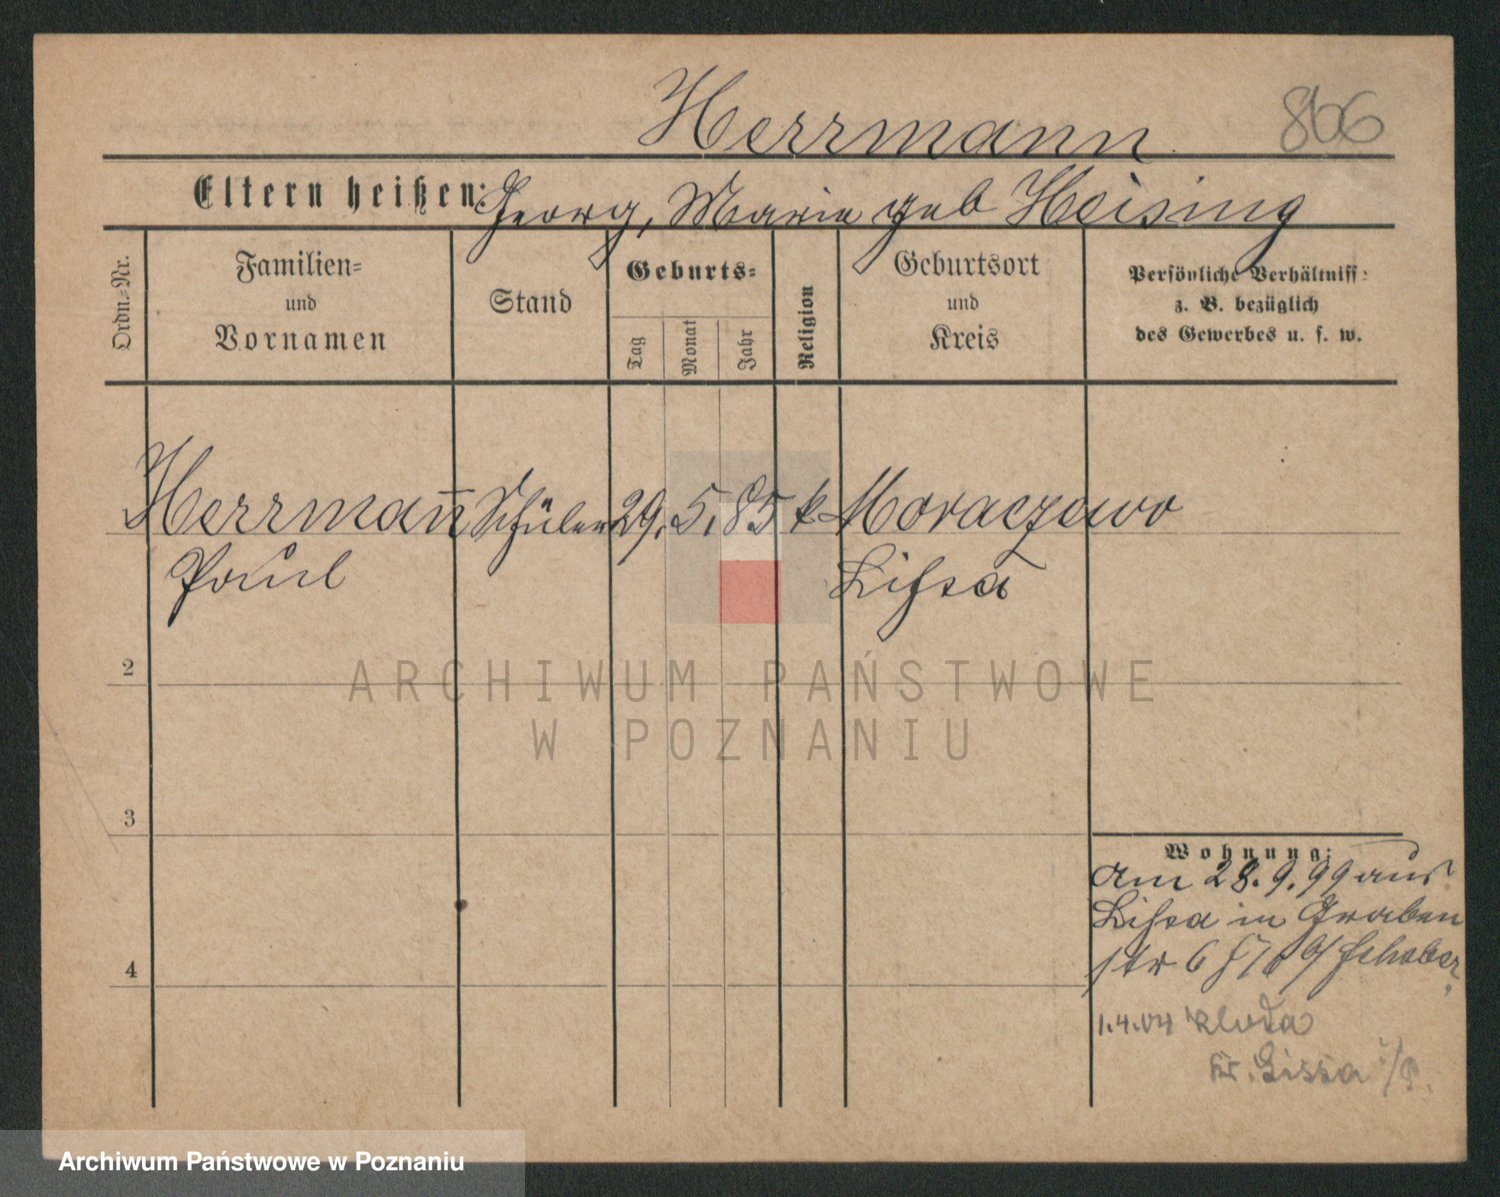 Herrmann
866
Eltern heißen: Georg, Marie geb Heising
Ordn.-Nr.
Familien-
und
Vornamen
Stand
Geburts-
Tag
Monat
Jahr
Religion
Geburtsort
und
Kreis
Persönliche Verhältniss-
z. B. bezüglich
des Gewerbes u. s. w.
Herrman̄ Schüler 29. 5. 85 k Moraczewo
Paul Lissa
2
3
4
ARCHIWUM PAŃSTWOWE
W POZNANIU
Wohnung:
Am 28.9.99 aus
Lissa in Graben
str 6 Schober
1.4.04 Kloda
Kr. Lissa i/P.
Archiwum Państwowe w Poznaniu